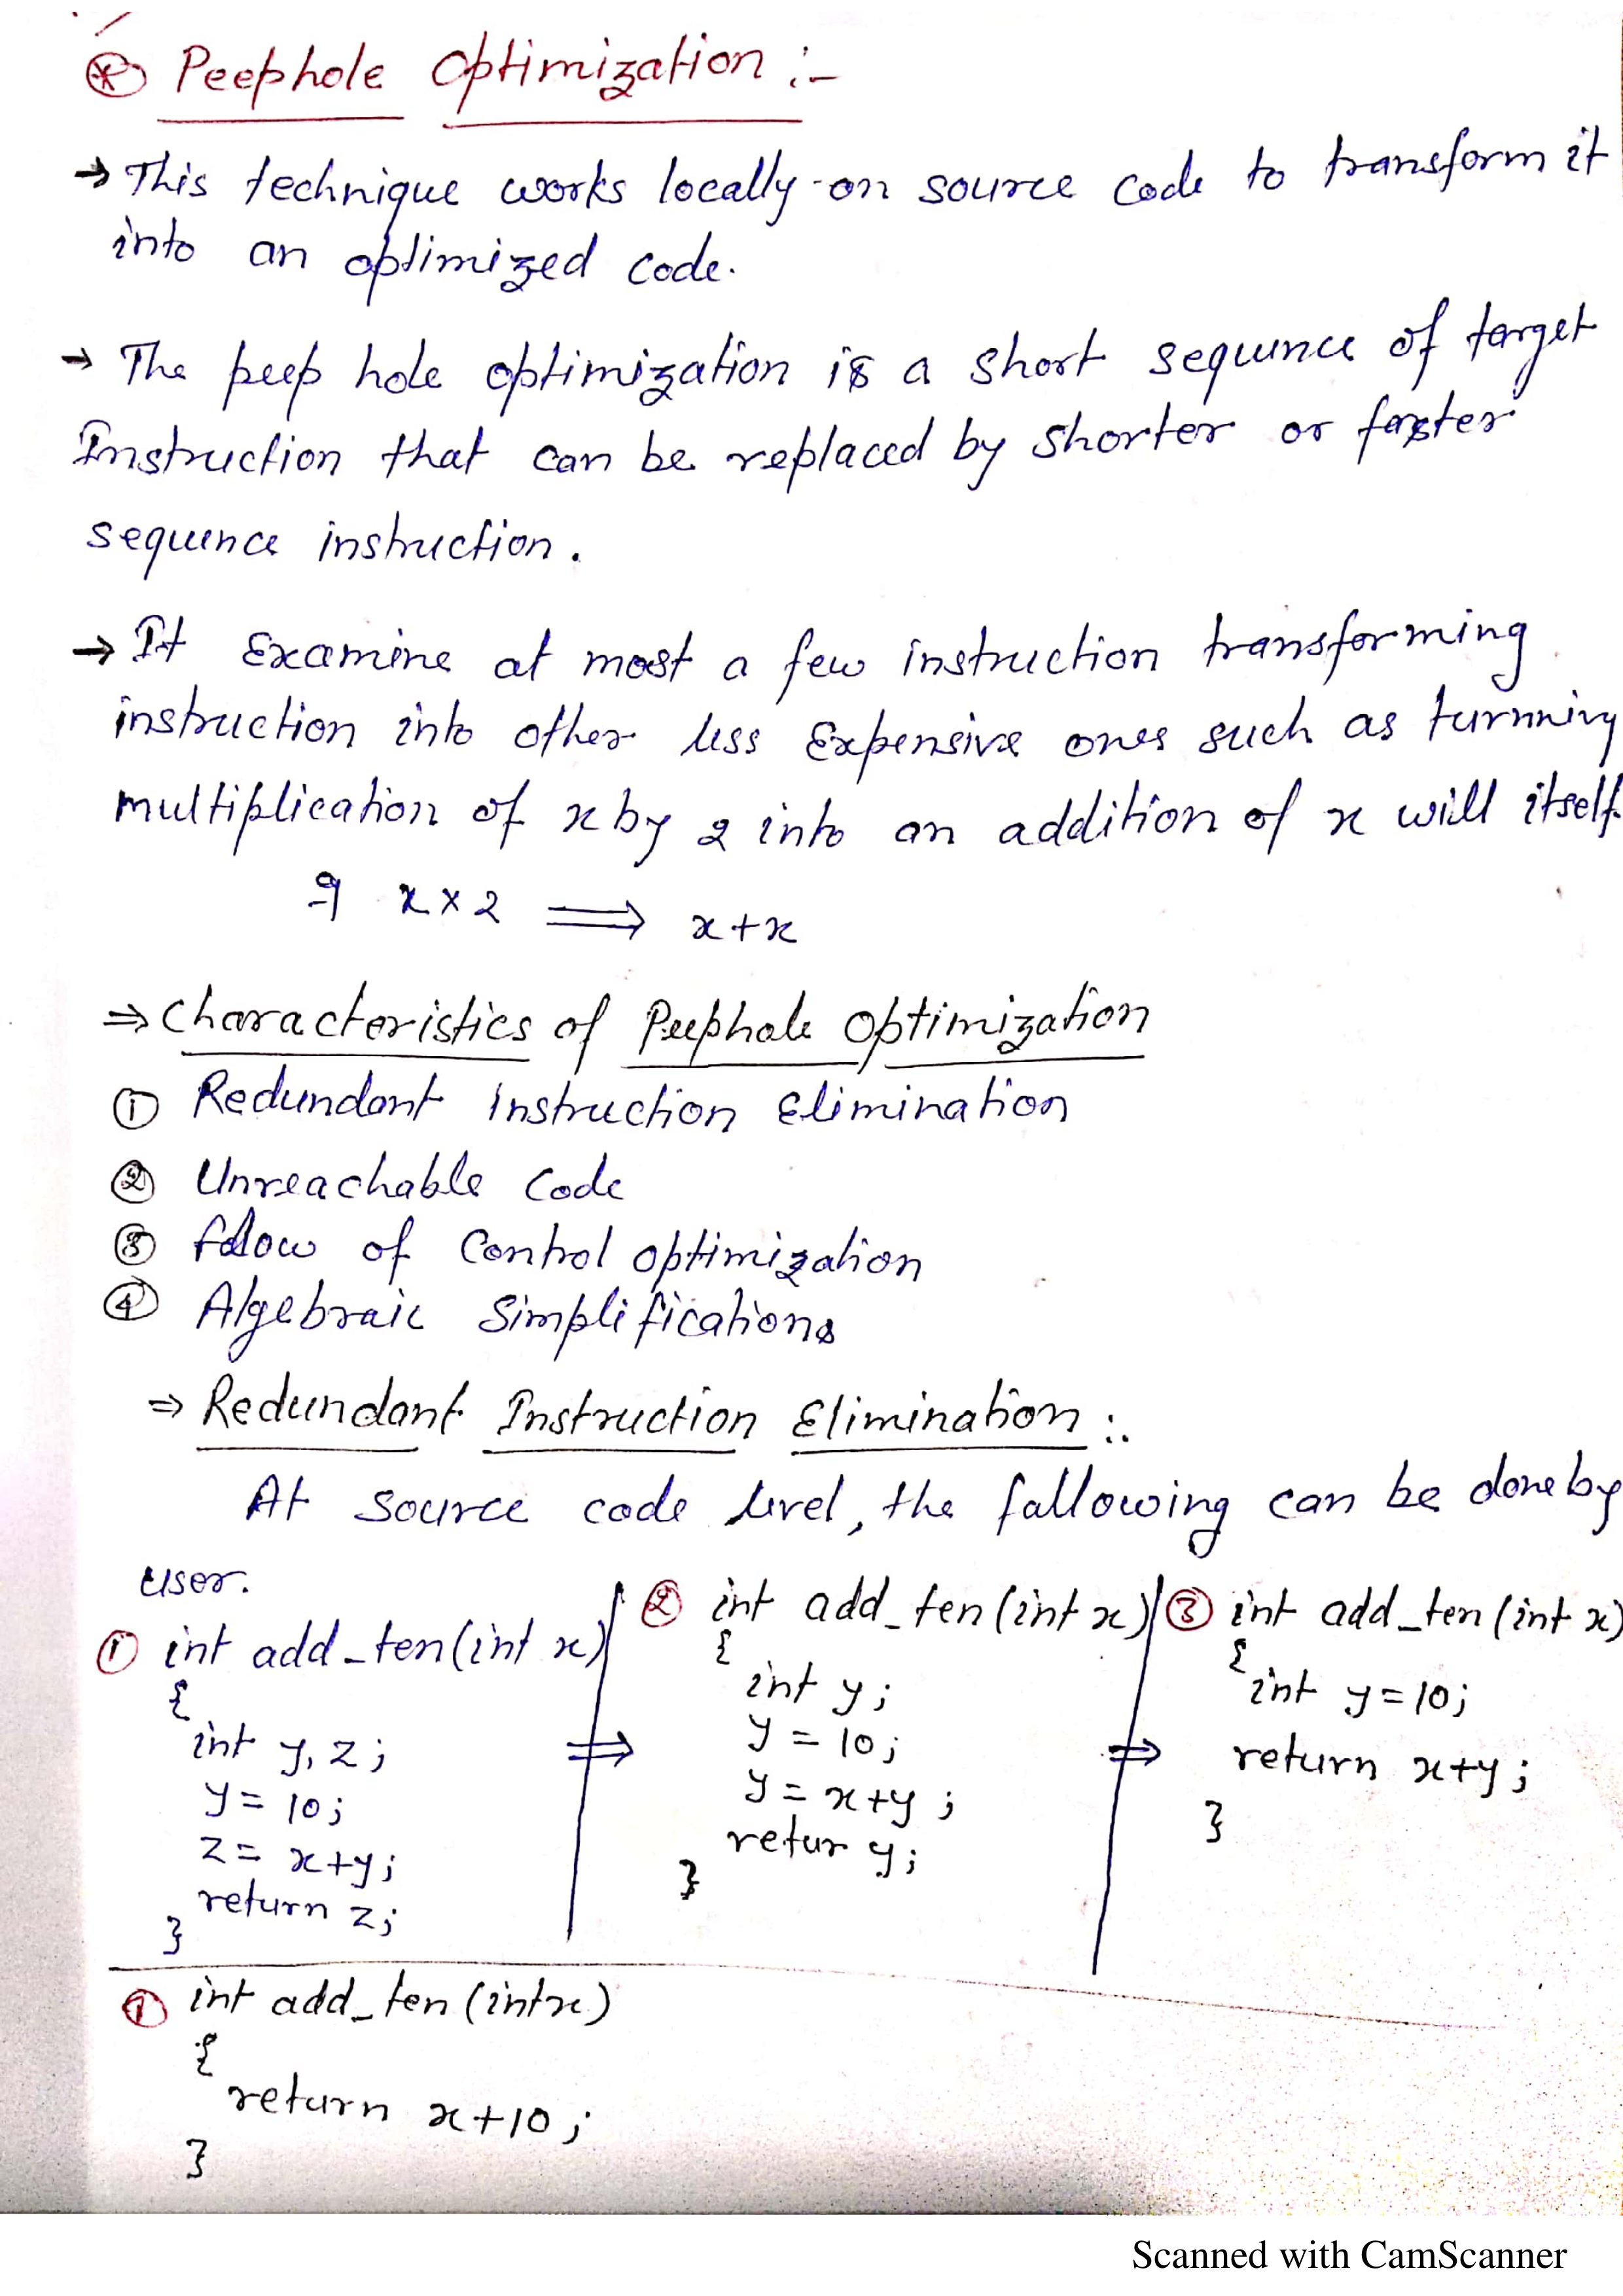 Peephole Optimization :-
→ This technique works locally on source code to transform it
into an optimized code.
→ The peep hole optimization is a short sequence of target
Instruction that can be replaced by shorter or faster
sequence instruction.
→ It Examine at most a few instruction transforming
instruction into other less Expensive ones such as turnning
multiplication of x by 2 into an addition of x will itself.
x × 2 ⟹ x+x
⇒ Characteristics of Peephole Optimization
① Redundant Instruction Elimination
② Unreachable Code
③ flow of Control optimization
④ Algebraic Simplifications
⇒ Redundant Instruction Elimination :-
At source code level, the following can be done by
user.
① int add_ten(int x)
{
int y, z;
y = 10;
z = x+y;
return z;
}
⇒
② int add_ten(int x)
{
int y;
y = 10;
y = x+y;
retur y;
}
⇒
③ int add_ten(int x)
{
int y=10;
return x+y;
}
int add_ten(int x)
{
return x+10;
}
Scanned with CamScanner